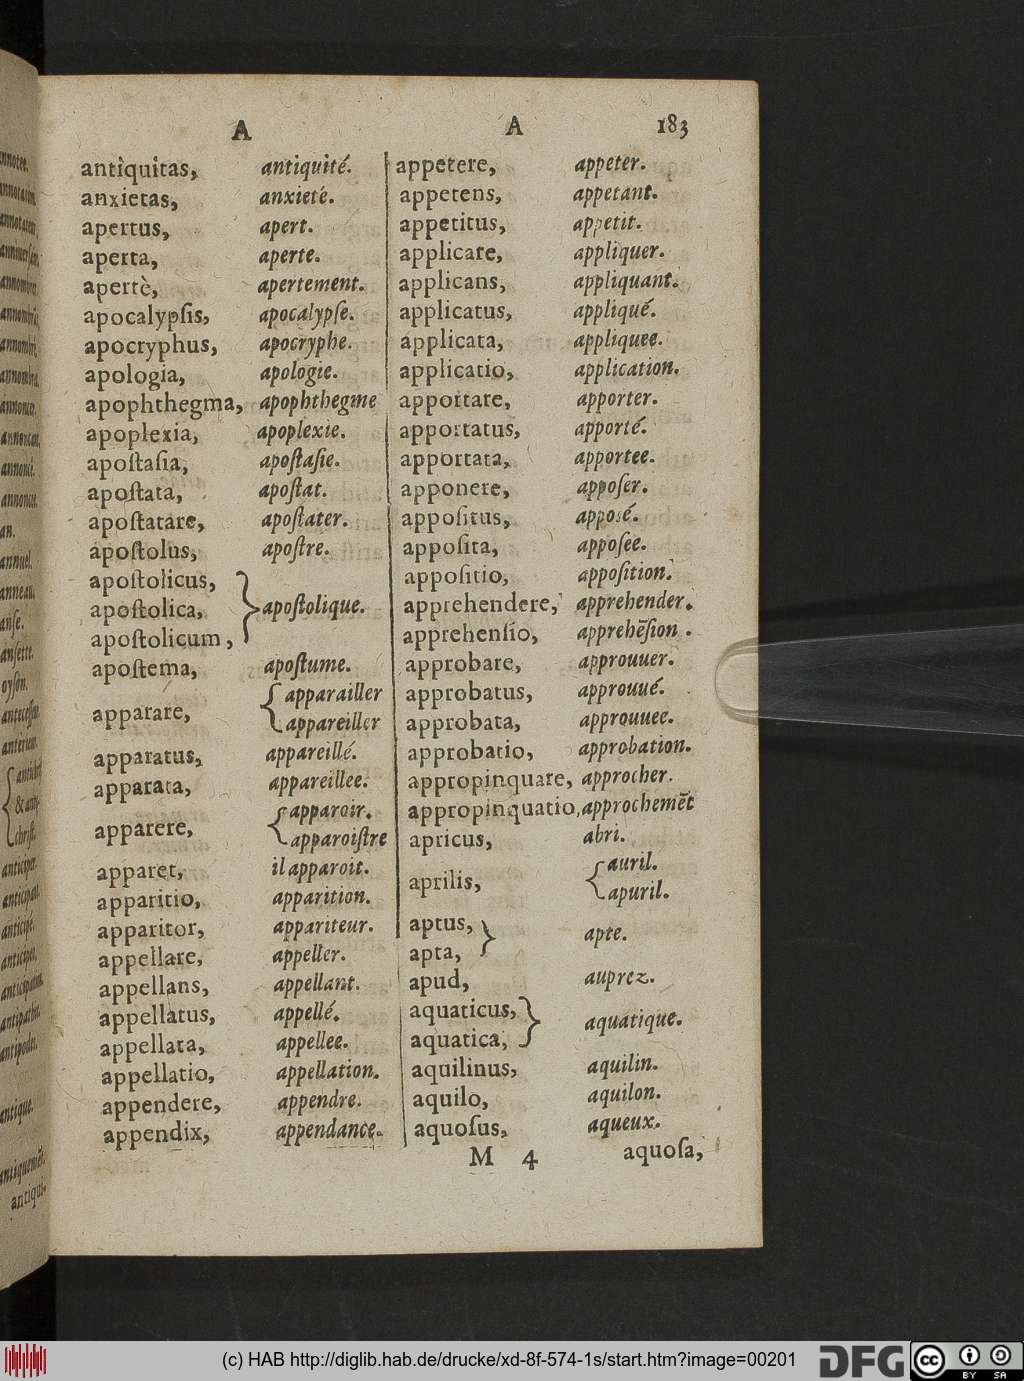 A A 183
antiquitas, antiquité.
anxietas, anxieté.
apertus, apert.
aperta, aperte.
apertè, apertement.
apocalypſis, apocalypſe.
apocryphus, apocryphe.
apologia, apologie.
apophthegma, apophthegme
apoplexia, apoplexie.
apoſtaſia, apoſtaſie.
apoſtata, apoſtat.
apoſtatare, apoſtater.
apoſtolus, apoſtre.
apoſtolicus,
apoſtolica, } apoſtolique.
apoſtolicum,
apoſtema, apoſtume.
apparare, { apparailler
appareiller
apparatus, appareillé.
apparata, appareillee.
apparere, { apparoir.
apparoiſtre
apparet, il apparoit.
apparitio, apparition.
apparitor, appariteur.
appellare, appeller.
appellans, appellant.
appellatus, appellé.
appellata, appellee.
appellatio, appellation.
appendere, appendre.
appendix, appendance.
appetere, appeter.
appetens, appetant.
appetitus, appetit.
applicare, appliquer.
applicans, appliquant.
applicatus, appliqué.
applicata, appliquee.
applicatio, application.
apportare, apporter.
apportatus, apporté.
apportata, apportee.
apponere, appoſer.
appoſitus, apposé.
appoſita, appoſee.
appoſitio, appoſition.
apprehendere, apprehender.
apprehenſio, apprehēſion.
approbare, approuuer.
approbatus, approuué.
approbata, approuuee.
approbatio, approbation.
appropinquare, approcher.
appropinquatio, approchemēt
apricus, abri.
aprilis, { auril.
apuril.
aptus, } apte.
apta,
apud, auprez.
aquaticus, } aquatique.
aquatica,
aquilinus, aquilin.
aquilo, aquilon.
aquoſus, aqueux.
M 4 aquoſa,
annombré,
annoncé.
an.
annuel.
anneau.
anſe.
anſette.
oyſon.
anticiper.
anticipé.
antipodes.
antique.
antiquemēt.
antiqui-
(c) HAB http://diglib.hab.de/drucke/xd-8f-574-1s/start.htm?image=00201
DFG
cc BY SA